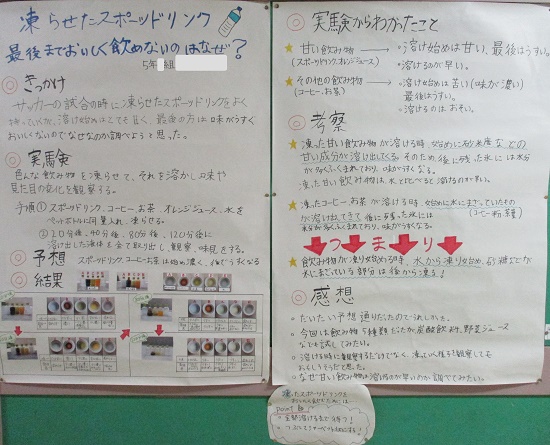 凍らせたスポーツドリンク
最後までおいしく飲めないのはなぜ?
5年 組
◎きっかけ
サッカーの試合の時に凍らせたスポーツドリンクをよく
持っていくが、溶け始めはとても甘く、最後の方は味がうすく
おいしくないのでなぜなのか調べようと思った。
◎実験
色んな飲み物を凍らせて、それを溶かし味や
見た目の変化を観察する。
手順① スポーツドリンク、コーヒー、お茶、オレンジジュース、水を
ペットボトルに同量入れ、凍らせる。
② 20分後、40分後、80分後、120分後に
溶け出した液体を全て取り出し、観察、味見をする。
◎予想 スポーツドリンク、コーヒー、お茶は始め濃く、後でうすくなる
◎結果
◎実験からわかったこと
★甘い飲み物 → ・溶け始めは甘い、最後はうすい。
(スポーツドリンク、オレンジジュース) ・溶けるのが早い。
★その他の飲み物 → ・溶け始めは苦い(味が濃い)
(コーヒー、お茶) 最後はうすい。
・溶けるのはおそい。
◎考察
★凍った甘い飲み物が溶ける時、始めに砂糖などの
甘い成分が溶け出してくる。そのため後に残った氷には水分
が多くふくまれており、味がうすくなる。
凍った甘い飲み物は、水と比べると溶けるのが早い。
★凍ったコーヒー、お茶が溶ける時、始めに氷にまざっていたもの
(コーヒー粉、茶葉)
が溶け出してきて後に残った氷には
水分が多くふくまれており、味がうすくなる。
つまり
★飲み物が凍り始める時、水から凍り始め、砂糖などが
氷にまざっている部分は後から凍る!
◎感想
・だいたい予想通りだったのでうれしかった。
・今回は飲み物5種類だったが炭酸飲料、野菜ジュース
なども試してみたい。
・溶ける時に観察するだけでなく、凍っていく様子も観察しても
おもしろそうだと思った。
・なぜ甘い飲み物は溶けるのが早いのか調べてみたい。
凍ったスポーツドリンクを
おいしく飲むためには
Point
・全部溶けるまで待つ!